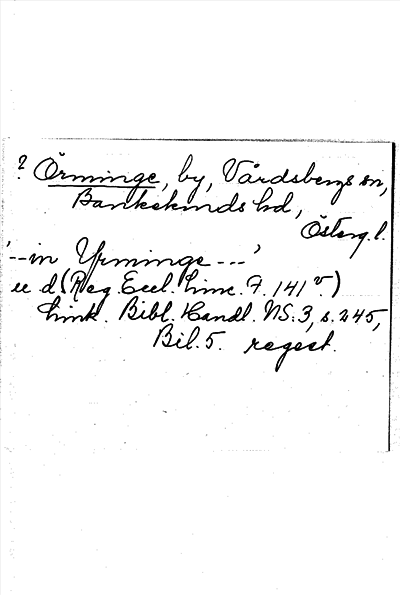 ? Örminge, by, Vårdsbergs sn,
Bankekinds hd,
Österg. l.
'-- in Yrminge ---'
u d (Reg. Eccl. Linc. F. 141 v.)
Link. Bibl. Handl. NS. 3, s. 245,
Bil. 5. regest.